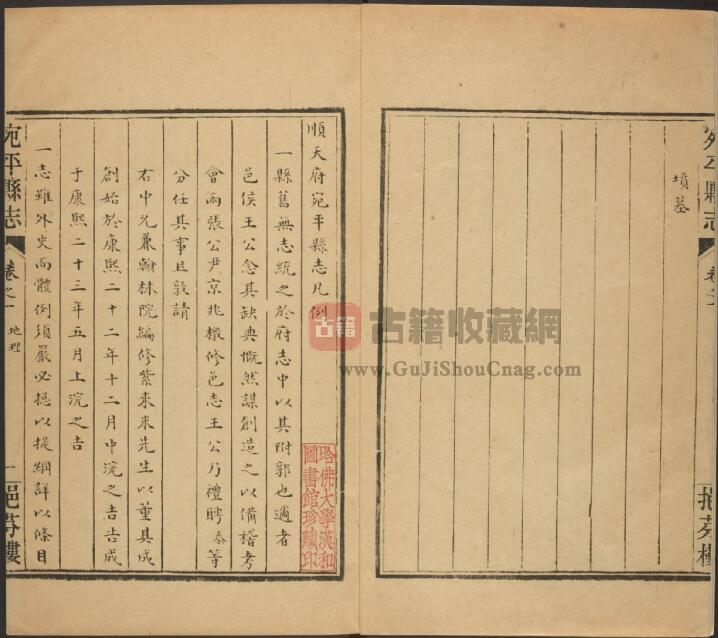 宛平縣志
卷之一
挹芬樓
墳墓
順天府宛平縣志凡例
一縣舊無志統之於府志中以其附郭也適者
邑侯王公念其缺典慨然謀創造之以備稽考
會兩張公尹京兆檄修邑志王公乃禮聘泰等
分任其事且敦請
右中允兼翰林院編修紫來米先生以董其成
創始於康熙二十二年十二月中浣之吉告成
于康熙二十三年五月上浣之吉
一志雖外史而體例須嚴必挈以提綱詳以條目
宛平縣志
卷之一 地理
一
挹芬樓
哈佛大學漢和
圖書館珍藏印
古籍
古籍收藏網
www.GuJiShouCnag.com